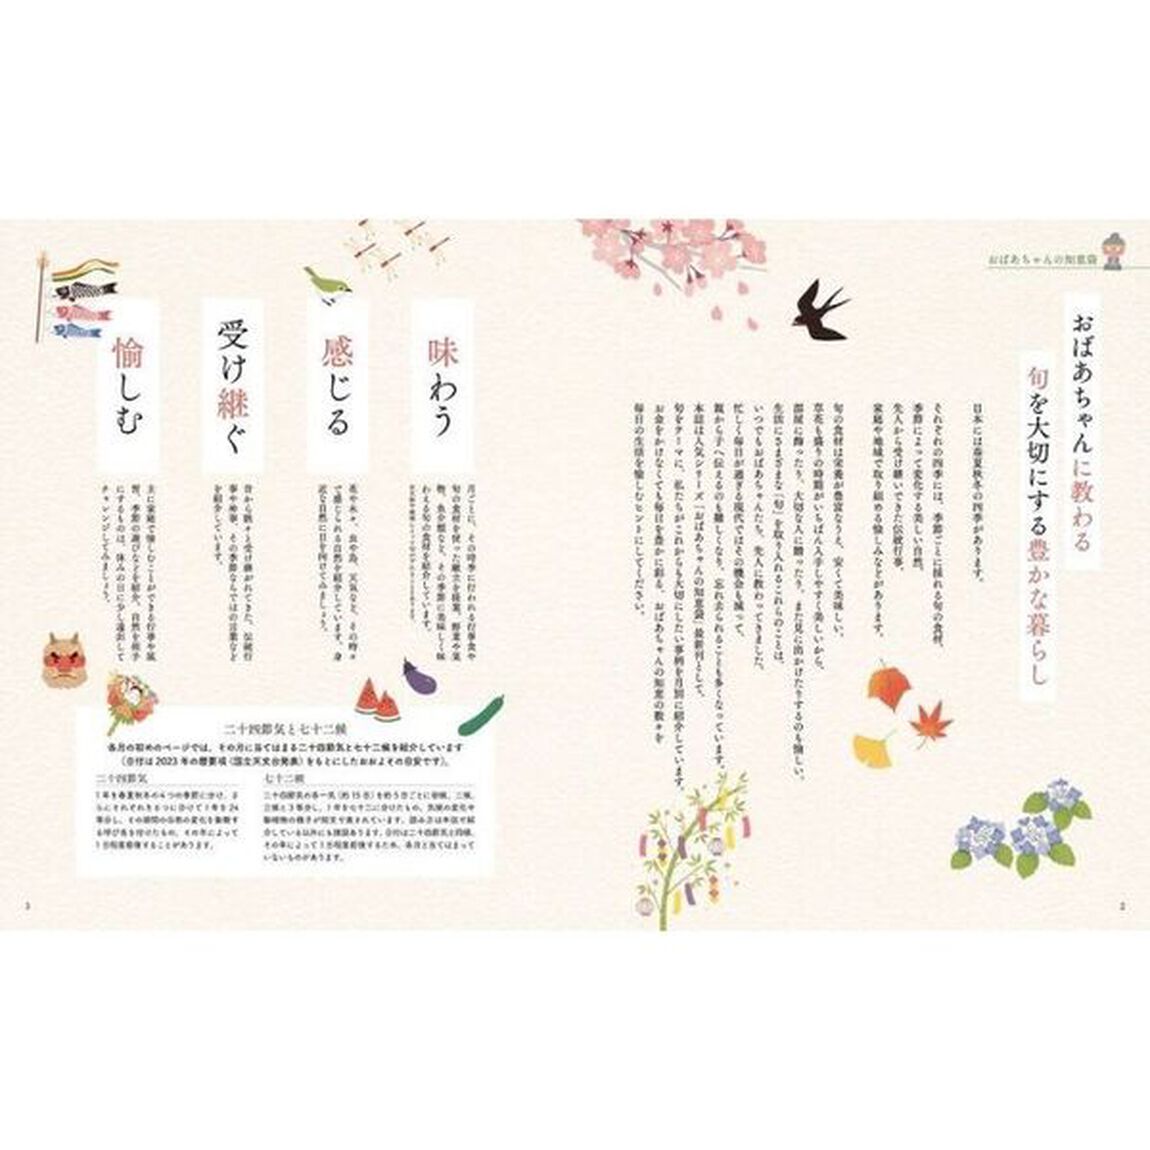 おばあちゃんの知恵袋
おばあちゃんに教わる
旬を大切にする豊かな暮らし
日本には春夏秋冬の四季があります。
それぞれの四季には、季節ごとに採れる旬の食材、
季節によって変化する美しい自然、
先人から受け継いできた伝統行事、
家庭や地域で取り組める愉しみなどがあります。
旬の食材は栄養が豊富なうえ、安くて美味しい。
草花も盛りの時期がいちばん入手しやすく美しいから、
部屋に飾ったり、大切な人に贈ったり、また見に出かけたりするのも愉しい。
生活にさまざまな「旬」を取り入れるこれらのことは、
いつでもおばあちゃんたち、先人に教わってきました。
忙しく毎日が過ぎる現代ではその機会も減って、
親から子へ伝えるのも難しくなり、忘れ去られることも多くなっています。
本誌は人気シリーズ「おばあちゃんの知恵袋」最新刊として、
旬をテーマに、私たちがこれからも大切にしたい事柄を月別に紹介しています。
お金をかけなくても毎日を豊かに彩る、おばあちゃんの知恵の数々を
毎日の生活を愉しむヒントにしてください。
2
味わう
月ごとに、その時季に行われる行事食や
旬の食材を使った献立を提案。野菜や果
物、魚介類など、その季節に美味しく味
わえる旬の食材を紹介しています。
感じる
花や木々、虫や鳥、天気など、その時々
で感じられる自然を紹介しています。身
近な自然に目を向けてみましょう。
受け継ぐ
昔から脈々と受け継がれてきた、伝統行
事や神事、その季節ならではの言葉など
を紹介しています。
愉しむ
主に家庭で愉しむことができる行事や風
習、季節の遊びなどを紹介。自然を相手
にするものは、休みの日に少し遠出して
チャレンジしてみましょう。
二十四節気と七十二候
各月の初めのページでは、その月に当てはまる二十四節気と七十二候を紹介しています
（日付は2023年の暦要項（国立天文台発表）をもとにしたおおよその目安です）。
二十四節気
1年を春夏秋冬の4つの季節に分け、さ
らにそれぞれを6つに分けて1年を24
等分し、その期間の自然の変化を象徴す
る呼び名を付けたもの。その年によって
1日程度前後することがあります。
七十二候
二十四節気の各一気（約15日）を約5日ごとに初候、二候、
三候と3等分し、1年を七十二に分けたもの。気候の変化や
動植物の様子が短文で表されています。読み方は本誌で紹
介している以外にも諸説あります。日付は二十四節気と同様、
その年によって1日程度前後するため、各月と当てはまって
いないものがあります。
3